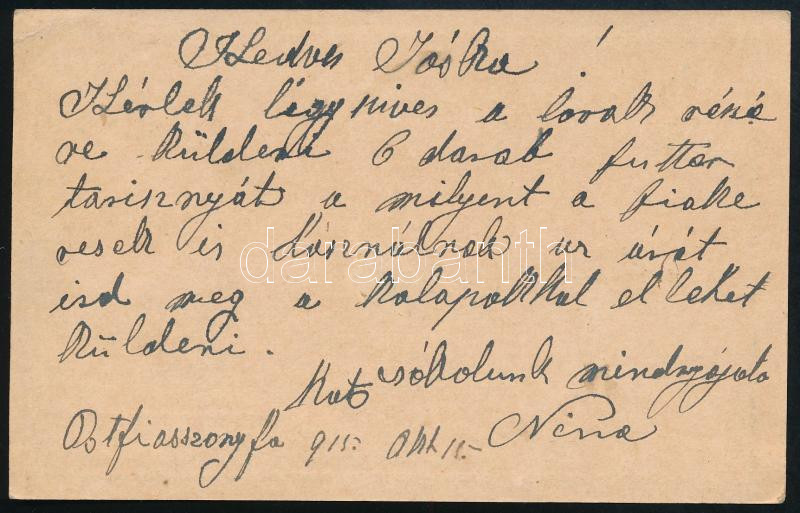 Kedves Jóska!
Kérlek légy szives a lovak részé
re küldeni 6 darab futter
tarisznyát a milyent a fiake
resek is használnak az árát
ird meg a kalapokkal el lehet
küldeni.
csókolunk mindnyájato
kat
Ostfiasszonyfa 915. Okt 15. Nina
darabanth